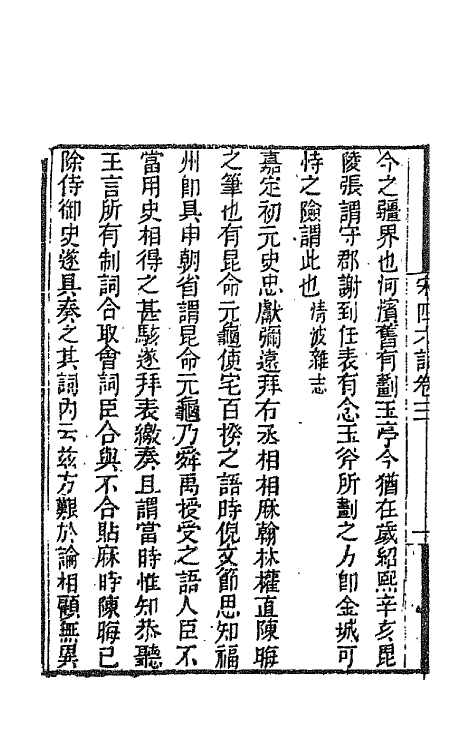 宋四六話卷三
今之疆界也河濱舊有劃玉亭今猶在歲紹熙辛亥毘
陵張謂守郡謝到任表有念玉斧所劃之方即金城可
恃之險謂此也清波雜志
嘉定初元史忠獻彌遠拜右丞相相麻翰林權直陳晦
之筆也有昆命元龜使宅百揆之語時倪文節思知福
州卽具申朝省謂昆命元龜乃舜禹授受之語人臣不
當用史相得之甚駭遂拜表繳奏且謂當時惟知恭聽
王言所有制詞合取會詞臣合與不合貼麻時陳晦已
除侍御史遂具奏之其詞內云茲方艱於論相顧無異